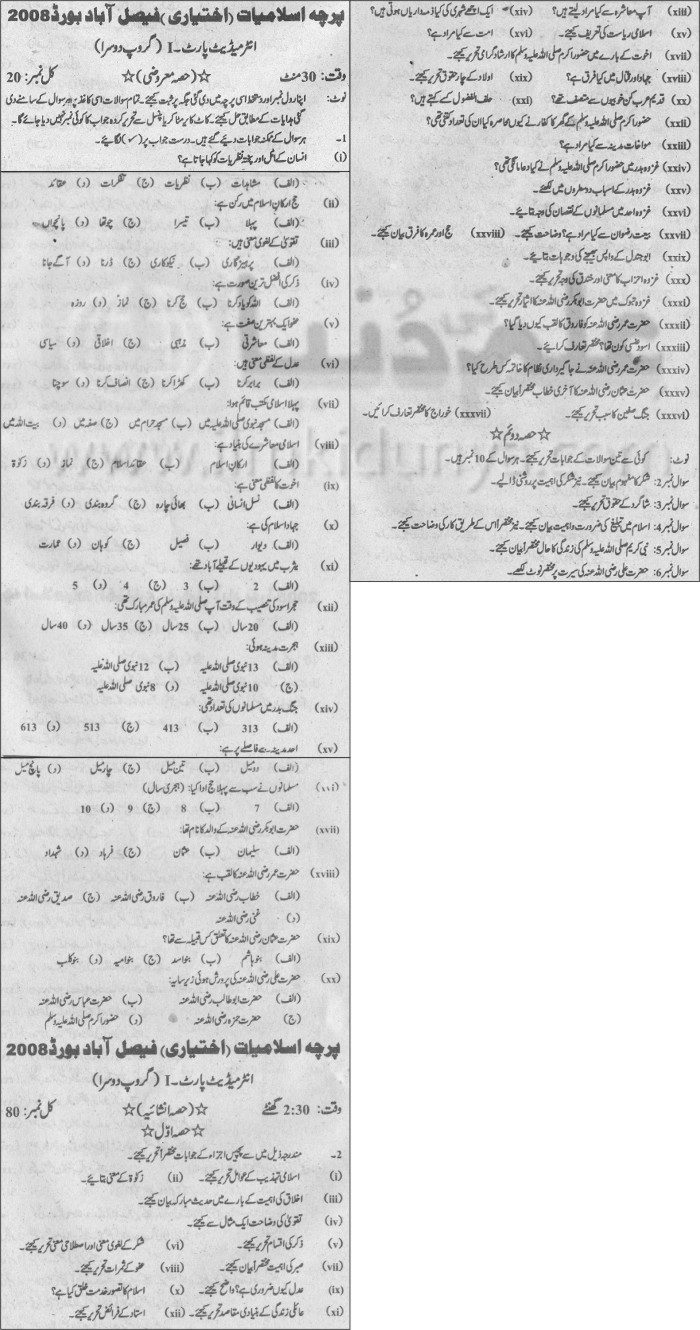 پرچہ اسلامیات (اختیاری) فیصل آباد بورڈ 2008
انٹرمیڈیٹ پارٹ-I (گروپ دوسرا)
وقت: 30 منٹ ☆(حصہ معروضی)☆ کل نمبر: 20
نوٹ: اپنا رول نمبر اور دستخط اسی پرچہ میں دی گئی جگہ پر ثبت کیجئے۔ تمام سوالات اسی کاغذ پر ہر سوال کے سامنے دی
گئی ہدایات کے مطابق حل کیجئے۔ کاٹ کر یا مٹا کر یا پنسل سے تحریر کردہ جواب کا کوئی نمبر نہیں دیا جائے گا۔
1- ہر سوال کے ممکنہ جوابات دیئے گئے ہیں۔ درست جواب پر (✓) لگائیے۔
(i) انسان کے اٹل اور پختہ نظریات کو کہا جاتا ہے؟
(الف) مشاہدات (ب) نظریات (ج) تفکرات (د) عقائد
(ii) حج ارکانِ اسلام میں رکن ہے:
(الف) پہلا (ب) تیسرا (ج) چوتھا (د) پانچواں
(iii) تقویٰ کے لغوی معنی ہیں:
(الف) پرہیزگاری (ب) نیکوکاری (ج) ڈرنا (د) آگے جانا
(iv) ذکر کی افضل ترین صورت ہے:
(الف) اللہ کو یاد کرنا (ب) حج کرنا (ج) نماز (د) روزہ
(v) عفو ایک بہترین صفت ہے:
(الف) معاشرتی (ب) مذہبی (ج) اخلاقی (د) سیاسی
(vi) عدل کے لفظی معنی ہیں:
(الف) برابر کرنا (ب) کھڑا کرنا (ج) انصاف کرنا (د) سوچنا
(vii) پہلا اسلامی مکتب قائم ہوا:
(الف) مسجد نبوی صلی اللہ علیہ میں (ب) مسجد حرام میں (ج) صفہ میں (د) بیت اللہ میں
(viii) اسلامی معاشرے کی بنیاد ہے:
(الف) ارکانِ اسلام (ب) عقائد اسلام (ج) نماز (د) زکوٰۃ
(ix) اخوت کا لفظی معنی ہے:
(الف) نسل انسانی (ب) بھائی چارہ (ج) گروہ بندی (د) فرقہ بندی
(x) جہاد اسلام کی ہے:
(الف) دیوار (ب) فصیل (ج) کوہان (د) عمارت
(xi) یثرب میں یہودیوں کے قبیلے آباد تھے:
(الف) 2 (ب) 3 (ج) 4 (د) 5
(xii) حجر اسود کی تنصیب کے وقت آپ صلی اللہ علیہ وسلم کی عمر مبارک تھی:
(الف) 20 سال (ب) 25 سال (ج) 35 سال (د) 40 سال
(xiii) ہجرت مدینہ ہوئی:
(الف) 13 نبوی صلی اللہ علیہ (ب) 12 نبوی صلی اللہ علیہ
(ج) 10 نبوی صلی اللہ علیہ (د) 8 نبوی صلی اللہ علیہ
(xiv) جنگ بدر میں مسلمانوں کی تعداد تھی:
(الف) 313 (ب) 413 (ج) 513 (د) 613
(xv) احد مدینہ سے فاصلے پر ہے:
(الف) دو میل (ب) تین میل (ج) چار میل (د) پانچ میل
(xvi) مسلمانوں نے سب سے پہلا حج ادا کیا: (ہجری سال)
(الف) 7 (ب) 8 (ج) 9 (د) 10
(xvii) حضرت ابوبکر رضی اللہ عنہ کے والد کا نام تھا:
(الف) سلیمان (ب) عثمان (ج) فرہاد (د) شہداد
(xviii) حضرت عمر رضی اللہ عنہ کا لقب ہے:
(الف) خطاب رضی اللہ عنہ (ب) فاروق رضی اللہ عنہ (ج) صدیق رضی اللہ عنہ
(د) غنی رضی اللہ عنہ
(xix) حضرت عثمان رضی اللہ عنہ کا تعلق کس قبیلہ سے تھا؟
(الف) بنو ہاشم (ب) بنو اسد (ج) بنو امیہ (د) بنو کلب
(xx) حضرت علی رضی اللہ عنہ کی پرورش ہوئی زیر سایہ:
(الف) حضرت ابو طالب رضی اللہ عنہ (ب) حضرت عباس رضی اللہ عنہ
(ج) حضرت حمزہ رضی اللہ عنہ (د) حضور اکرم صلی اللہ علیہ وسلم
پرچہ اسلامیات (اختیاری) فیصل آباد بورڈ 2008
انٹرمیڈیٹ پارٹ-I (گروپ دوسرا)
وقت: 2:30 گھنٹے ☆(حصہ انشائیہ)☆ کل نمبر: 80
☆حصہ اوّل☆
2- مندرجہ ذیل میں سے پچیس اجزاء کے جوابات مختصراً تحریر کیجئے۔
(i) اسلامی تہذیب کے عوامل تحریر کیجئے۔ (ii) زکوٰۃ کے معنی بتائیے۔
(iii) اخلاق کی اہمیت کے بارے میں حدیث مبارکہ بیان کیجئے۔
(iv) تقویٰ کی وضاحت ایک مثال سے کیجئے۔
(v) ذکر کی اقسام تحریر کیجئے۔ (vi) شکر کے لغوی معنی اور اصطلاحی معنی تحریر کیجئے۔
(vii) صبر کی اہمیت مختصراً بیان کیجئے۔ (viii) عفو کے ثمرات تحریر کیجئے۔
(ix) عدل کیوں ضروری ہے؟ واضح کیجئے۔ (x) اسلام کا تصور خدمت خلق کیا ہے؟
(xi) عائلی زندگی کے بنیادی مقاصد تحریر کیجئے۔ (xii) استاد کے فرائض تحریر کیجئے۔
(xiii) آپ معاشرہ سے کیا مراد لیتے ہیں؟ (xiv) ایک اچھے شہری کی کیا ذمہ داریاں ہوتی ہیں؟
(xv) اسلامی ریاست کی تعریف کیجئے۔ (xvi) امت سے کیا مراد ہے؟
(xvii) اخوت کے بارے میں حضور اکرم صلی اللہ علیہ وسلم کا ارشاد گرامی تحریر کیجئے۔
(xviii) جہاد اور قتال میں کیا فرق ہے؟ (xix) اولاد کے چار حقوق تحریر کیجئے۔
(xx) قدیم عرب کن خوبیوں سے متصف تھے؟ (xxi) حلف الفضول کسے کہتے ہیں؟
(xxii) حضور اکرم صلی اللہ علیہ وسلم کے گھر کا کفار نے کیوں محاصرہ کیا ان کی تعداد کتنی تھی؟
(xxiii) مواخات مدینہ سے کیا مراد ہے؟
(xxiv) غزوہ بدر میں حضور اکرم صلی اللہ علیہ وسلم نے کیا دعا مانگی تھی؟
(xxv) غزوہ بدر کے اسباب دو سطروں میں لکھئے۔
(xxvi) غزوہ احد میں مسلمانوں کے نقصان کی وجہ بتائیے۔
(xxvii) بیعت رضوان سے کیا مراد ہے؟ وضاحت کیجئے۔ (xxviii) حج اور عمرہ کا فرق بیان کیجئے۔
(xxix) ابو جندل کے واپس بھیجنے کی وجوہات بتائیے۔
(xxx) غزوہ احزاب کا معنی اور خندق کی وجہ تحریر کیجئے۔
(xxxi) غزوہ تبوک میں حضرت ابوبکر رضی اللہ عنہ کا ایثار تحریر کیجئے۔
(xxxii) حضرت عمر رضی اللہ عنہ کو فاروق کا لقب کیوں دیا گیا؟
(xxxiii) اسود عنسی کون تھا؟ مختصر تعارف کرائیے۔
(xxxiv) حضرت عمر رضی اللہ عنہ نے جاگیرداری نظام کا خاتمہ کس طرح کیا؟
(xxxv) حضرت عثمان رضی اللہ عنہ کا آخری خطاب مختصراً بیان کیجئے۔
(xxxvi) جنگ صفین کا سبب تحریر کیجئے۔ (xxxvii) خوارج کا مختصر تعارف کرائیں۔
☆حصہ دوئم☆
نوٹ: کوئی سے تین سوالات کے جوابات تحریر کیجئے۔ ہر سوال کے 10 نمبر ہیں۔
سوال نمبر 2: شکر کا مفہوم بیان کیجئے۔ نیز شکر کی اہمیت پر روشنی ڈالیے۔
سوال نمبر 3: شاگرد کے حقوق تحریر کیجئے۔
سوال نمبر 4: اسلام میں تبلیغ کی ضرورت و اہمیت بیان کیجئے۔ نیز مختصراً اس کے طریق کار کی وضاحت کیجئے۔
سوال نمبر 5: نبی کریم صلی اللہ علیہ وسلم کی زندگی کا حال مختصراً بیان کیجئے۔
سوال نمبر 6: حضرت علی رضی اللہ عنہ کی سیرت پر مختصر نوٹ لکھئے۔